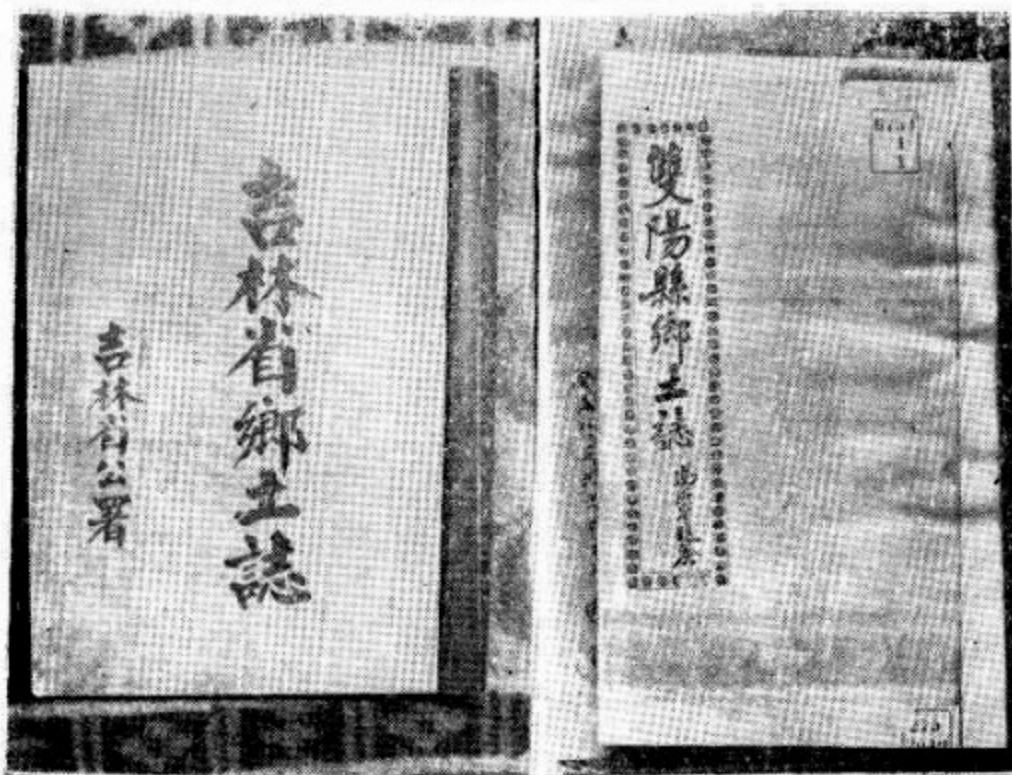 吉林省鄉土誌
吉林省公署
雙陽縣鄉土誌